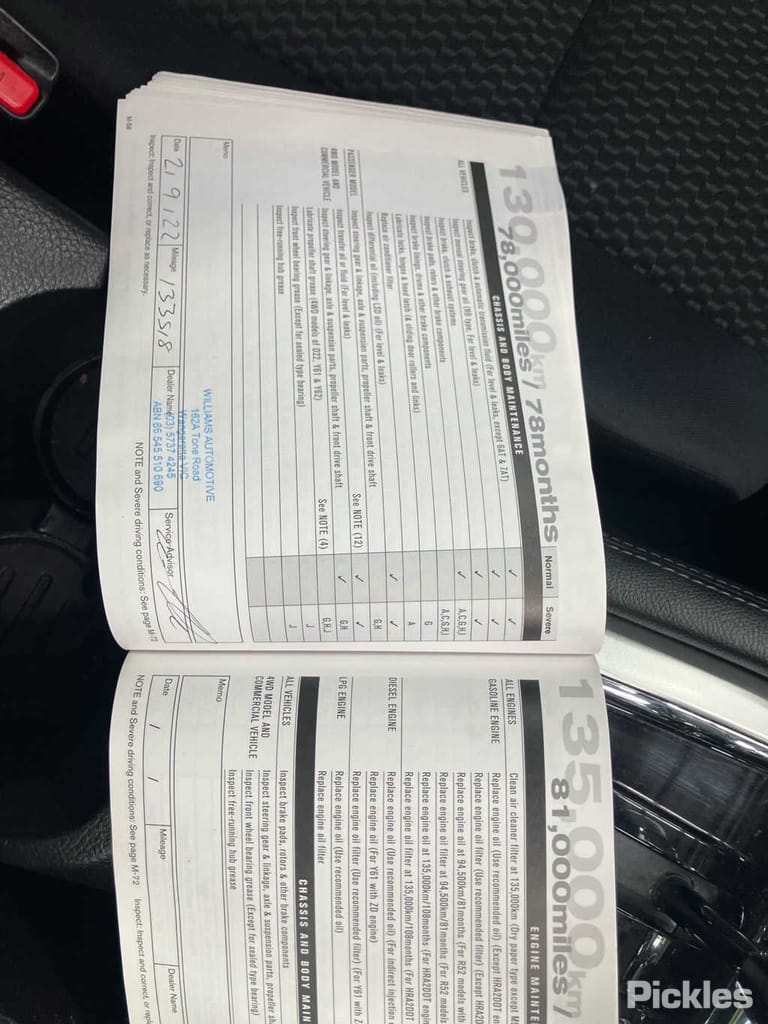 130,000km
78,000miles / 78months
CHASSIS AND BODY MAINTENANCE
Normal
Severe
ALL VEHICLES
Inspect brake, clutch & automatic transmission fluid (For level & leaks, except 6AT & 7AT)
✓ ✓
Inspect manual steering gear oil (RB type, For level & leaks)
✓ ✓
Inspect brake, clutch & exhaust systems
✓ ✓
Inspect brake pads, rotors & other brake components
✓ A,C,G,H,I
Inspect brake linings, drums & other brake components
A,C,G,H,I
Lubricate locks, hinges & hood latch (& sliding door rollers and links)
G
Replace air conditioner filter
A
Inspect differential oil (including LSD oil) (For level & leaks)
✓ ✓
PASSENGER MODEL
Inspect steering gear & linkage, axle & suspension parts, propeller shaft & front drive shaft
G,H
4WD MODEL AND
COMMERCIAL VEHICLE
Inspect transfer oil or fluid (For level & leaks)
See NOTE (12)
✓ ✓
Inspect steering gear & linkage, axle & suspension parts, propeller shaft & front drive shaft
✓ G,H
Lubricate propeller shaft grease (4WD models of D22, Y61 & Y62)
See NOTE (4)
G,H,J
Inspect front wheel bearing grease (Except for sealed type bearing)
J
Inspect free-running hub grease
J
Memo
WILLIAMS AUTOMOTIVE
162A Tone Road
Wangaratta VIC
(03) 5737 4245
ABN 86 545 510 690
Date 2/9/22
Mileage 133518
Dealer Name
Service Advisor
NOTE and Severe driving conditions: See page M-72
Inspect: Inspect and correct, or replace as necessary.
M-58
135,000km
81,000miles
ENGINE MAINTE
ALL ENGINES
Clean air cleaner filter at 135,000km (Dry paper type except M
GASOLINE ENGINE
Replace engine oil (Use recommended oil) (Except HRA2DDT en
Replace engine oil filter (Use recommended filter) (Except HRA2D
Replace engine oil at 94,500km/81months (For R52 models with
Replace engine oil filter at 94,500km/81months (For R52 models
Replace engine oil at 135,000km/108months (For HRA2DDT engin
Replace engine oil filter at 135,000km/108months (For HRA2DDT
DIESEL ENGINE
Replace engine oil (Use recommended oil) (For indirect injection
Replace engine oil (For Y61 with ZD engine)
Replace engine oil filter (Use recommended filter) (For Y61 with Z
LPG ENGINE
Replace engine oil (Use recommended oil)
Replace engine oil filter
CHASSIS AND BODY MAIN
ALL VEHICLES
Inspect brake pads, rotors & other brake components
4WD MODEL AND
COMMERCIAL VEHICLE
Inspect steering gear & linkage, axle & suspension parts, propeller sh
Inspect front wheel bearing grease (Except for sealed type bearing)
Inspect free-running hub grease
Memo
Date / /
Mileage
Dealer Name
NOTE and Severe driving conditions: See page M-72
Inspect: Inspect and correct, or repla
Pickles